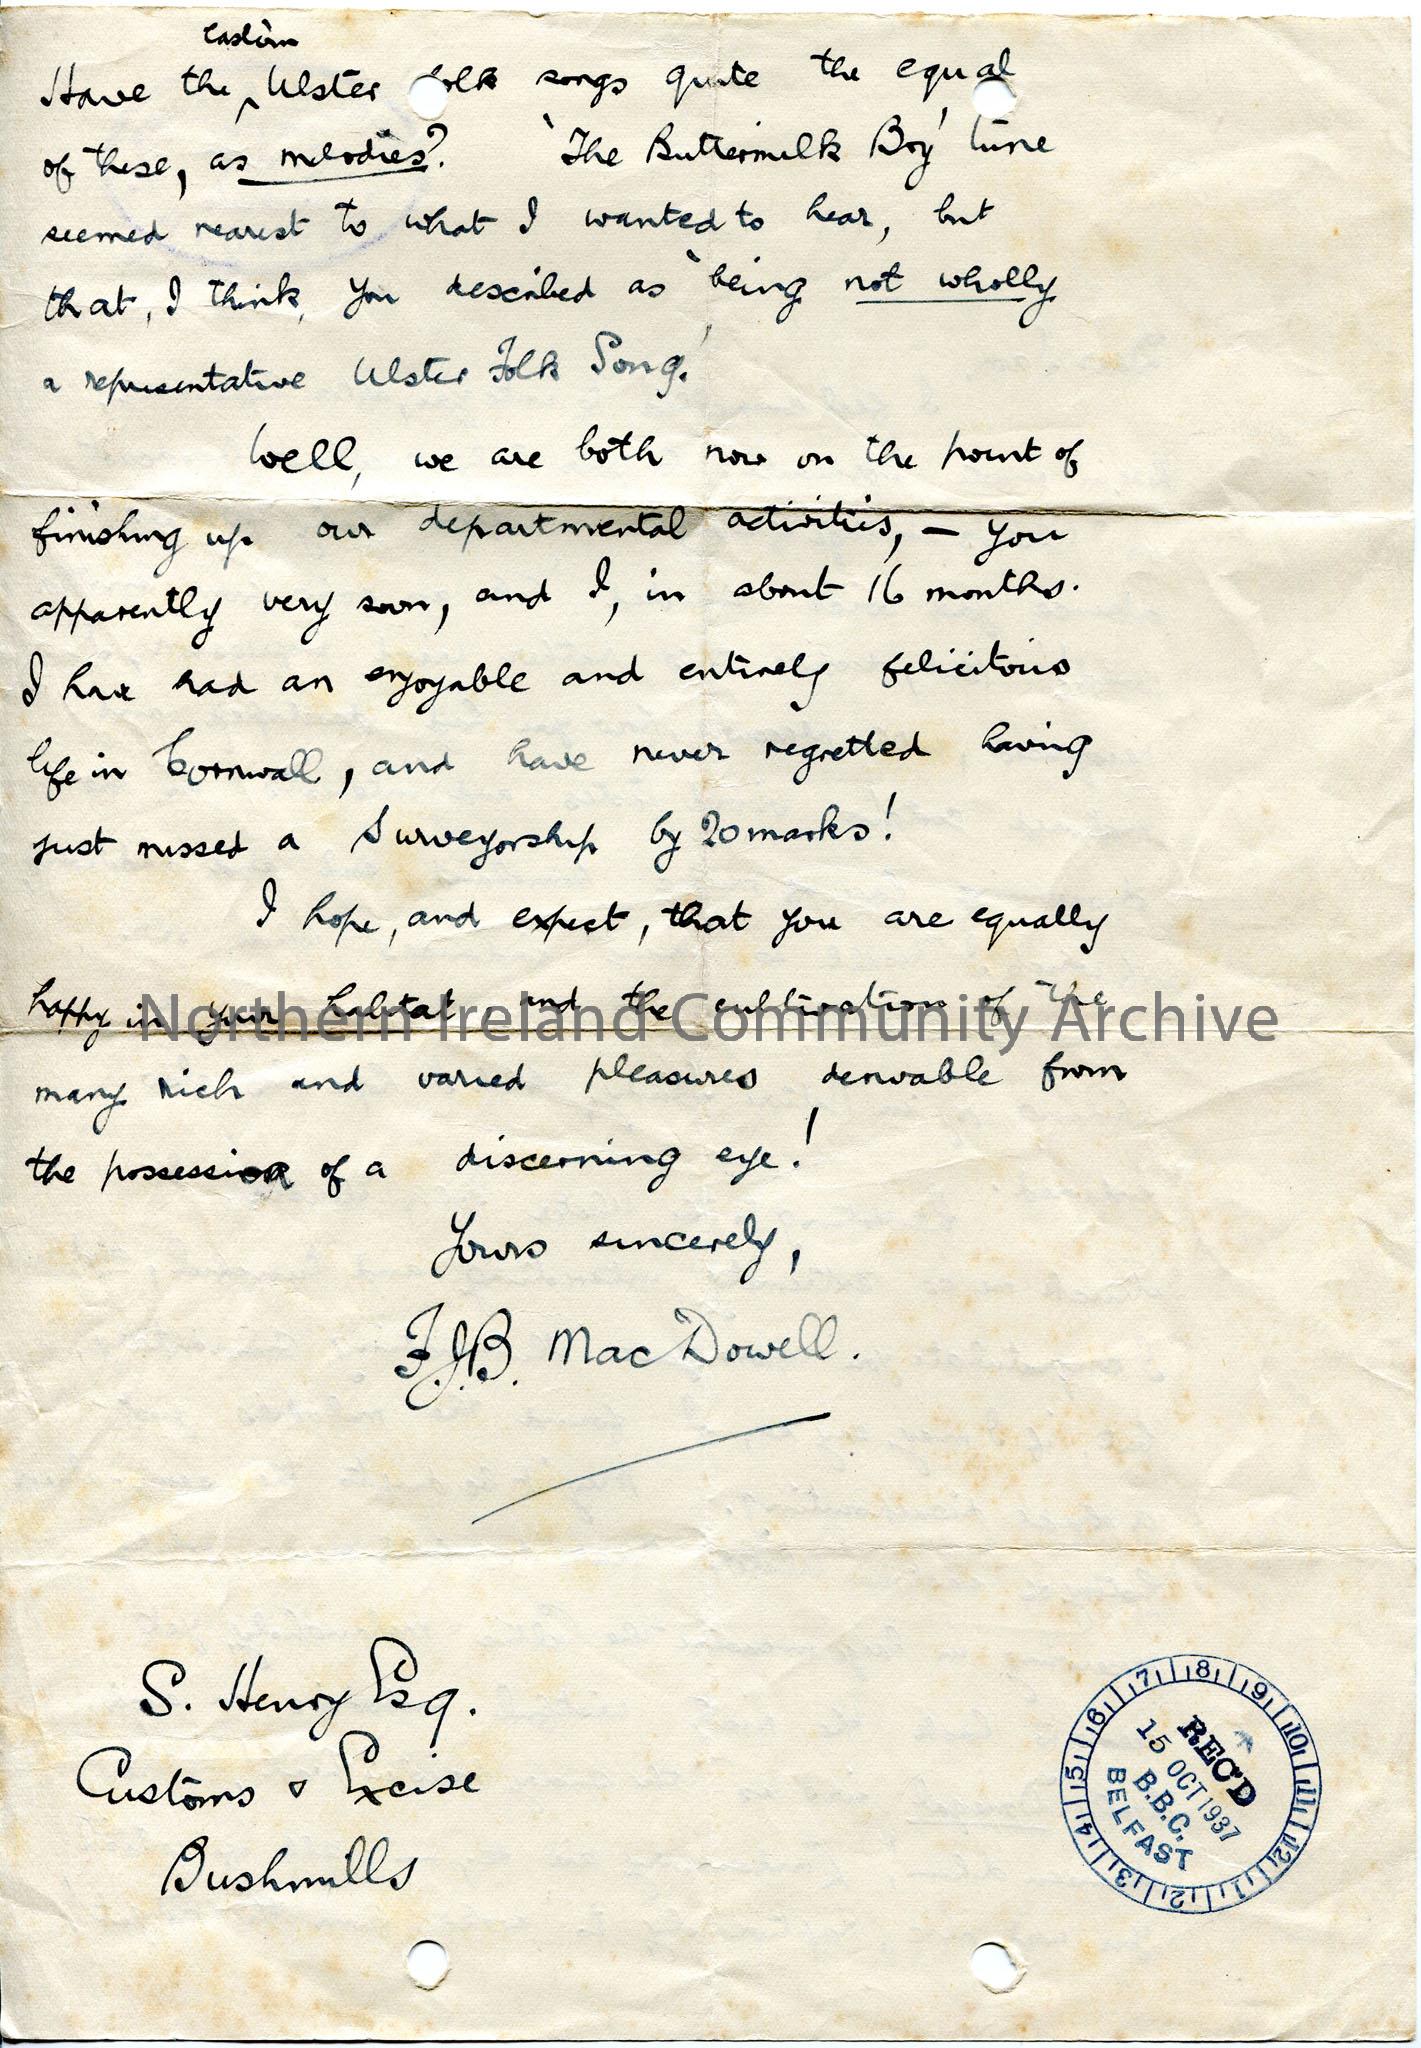 Eastern
Have the ‸ Ulster folk songs quite the equal
of these, as melodies? 'The Buttermilk Boy' tune
seemed nearest to what I wanted to hear, but
that, I think, you described as 'being not wholly
a representative Ulster Folk Song.'
Well, we are both now on the point of
finishing up our departmental activities, — you
apparently very soon, and I, in about 16 months.
I have had an enjoyable and entirely felicitous
life in Cornwall, and have never regretted having
just missed a Surveyorship by 20 marks!
I hope, and expect, that you are equally
happy in your habitat and the cultivation of the
Northern Ireland Community Archive
many rich and varied pleasures derivable from
the possession of a discerning eye!
Yours sincerely,
F.J.B. MacDowell.
S. Henry Esq.
Customs & Excise
Bushmills
REC'D
15 OCT 1937
B.B.C.
BELFAST
1 2 3 4 5 6 7 8 9 10 11 12